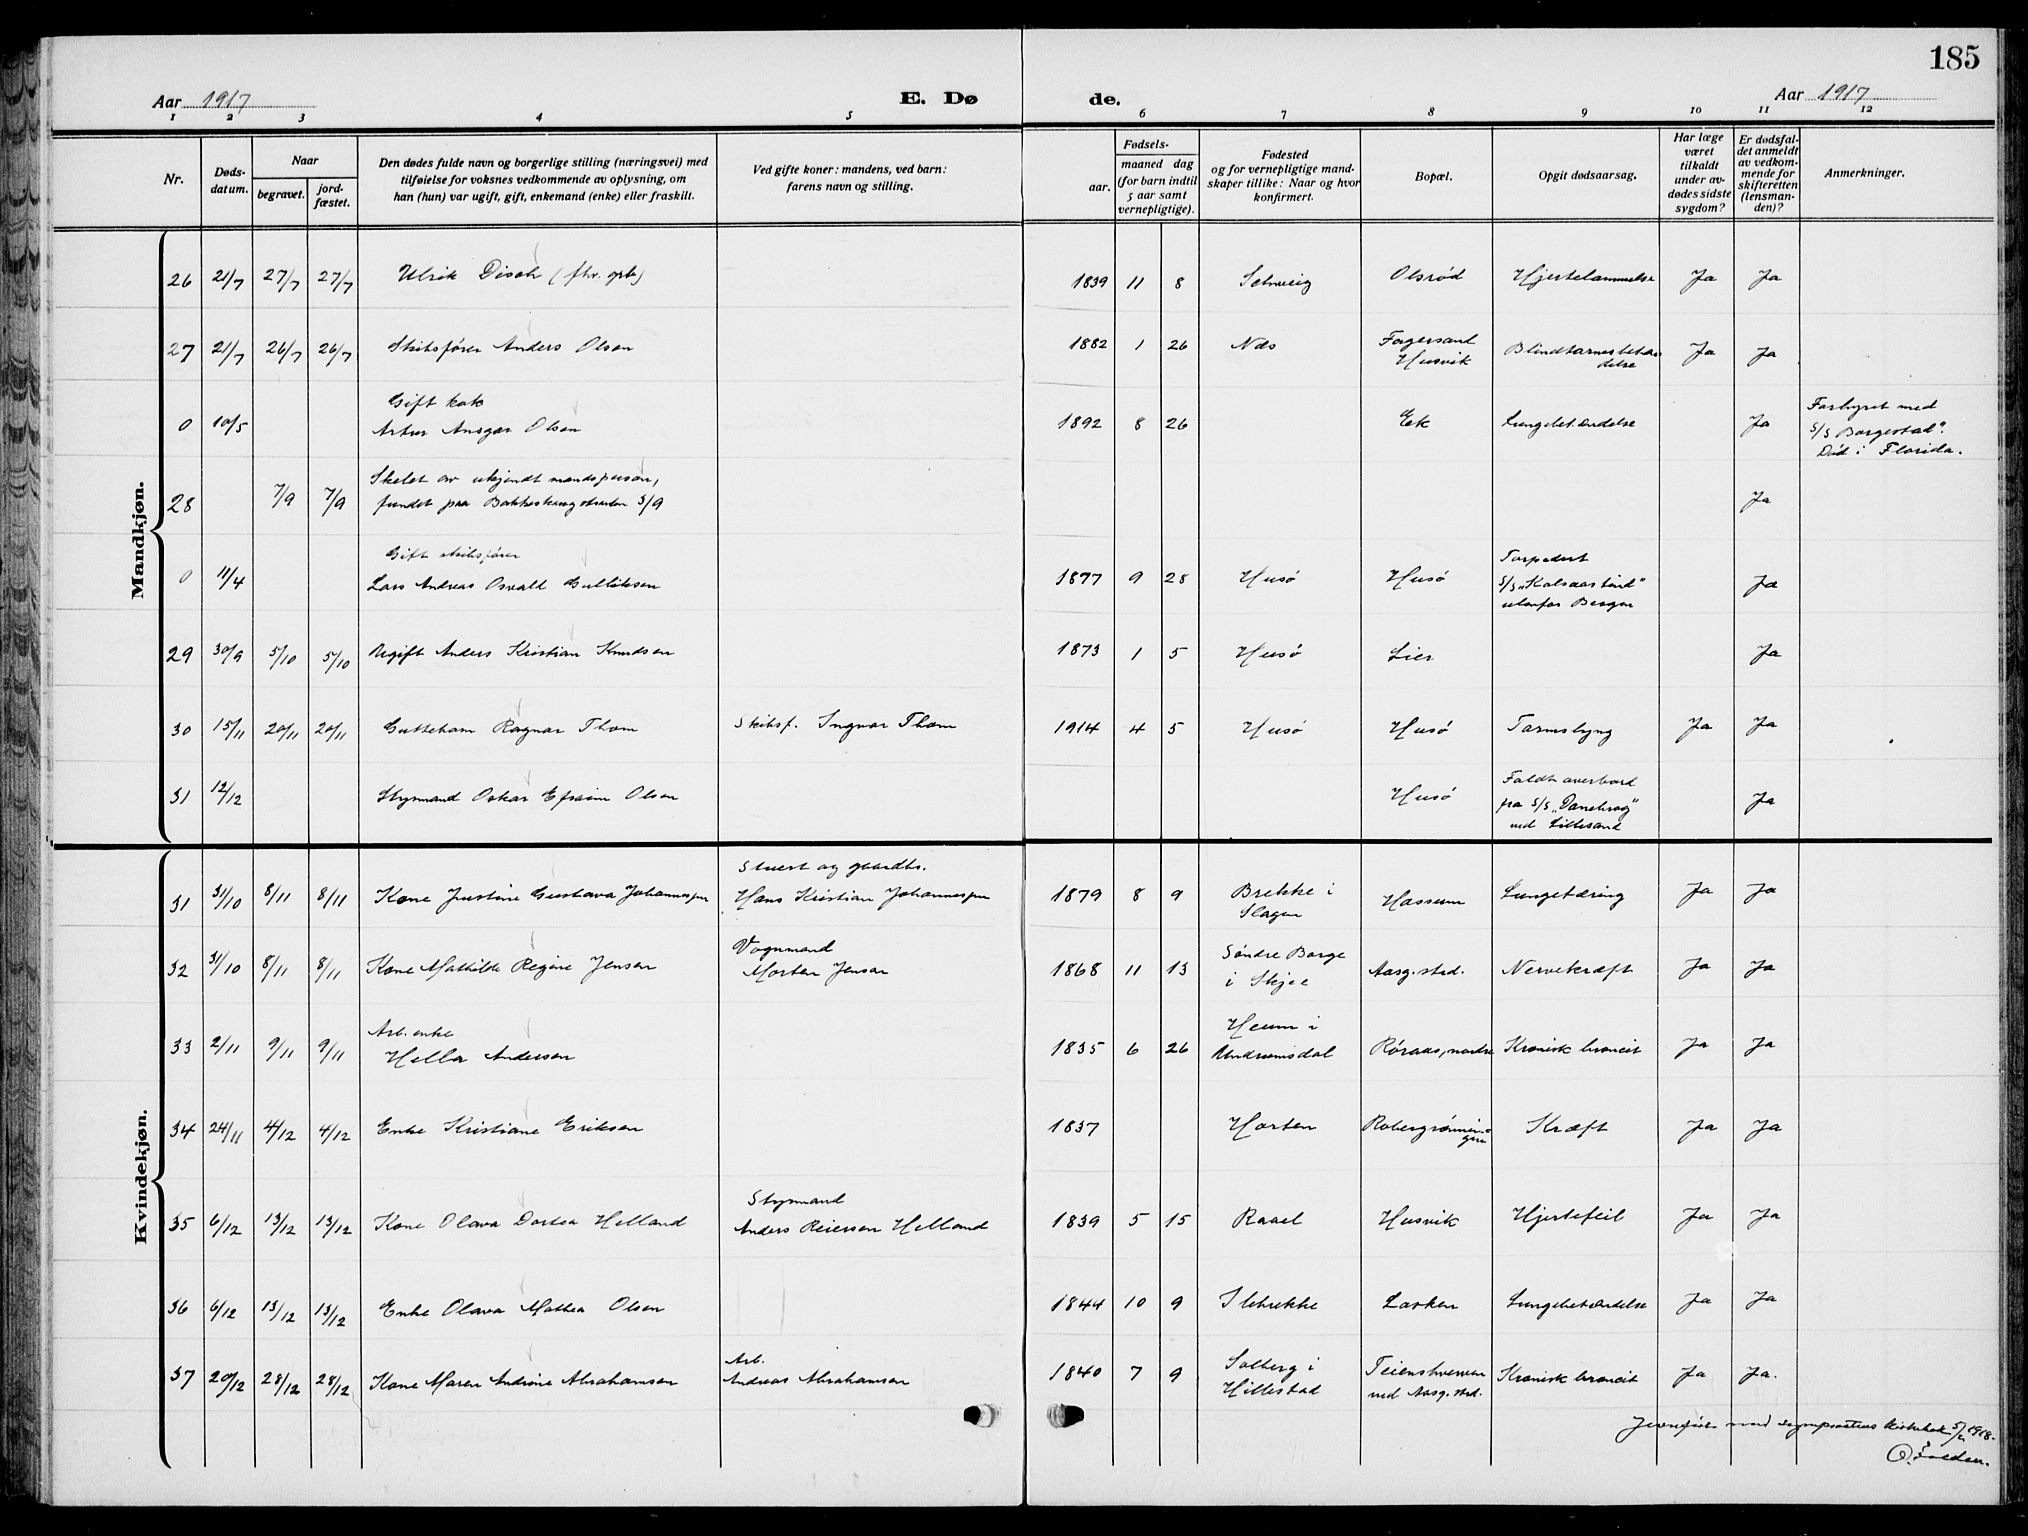 185
Aar 1917
E. Dø
de.
Aar 1917
1 2 3 4 5 6 7 8 9 10 11 12
Nr.
Døds-
datum.
Naar
begravet.
jord-
fæstet.
Den dødes fulde navn og borgerlige stilling (næringsvei) med
tilføielse for voksnes vedkommende av oplysning, om
han (hun) var ugift, gift, enkemand (enke) eller fraskilt.
Ved gifte koner: mandens, ved barn:
farens navn og stilling.
Fødsels-
aar.
maaned dag
(for barn indtil
5 aar samt
vernepligtige).
Fødested
og for vernepligtige mand-
skaper tillike: Naar og hvor
konfirmert.
Bopæl.
Opgit dødsaarsag.
Har læge
været
tilkaldt
under av-
dødes sidste
sygdom?
Er dødsfal-
det anmeldt
av vedkom-
mende for
skifteretten
(lensman-
den)?
Anmerkninger.
Mandkjøn.
26 21/7 27/7 27/7 Ulrik Disch 1839 11 8 Schweig Olsrød Hjertelammelse Ja Ja
27 21/7 26/7 26/7 Skibsfører Anders Olsen 1882 1 26 Næs Fagersand
Husvik Blindtarmsbetæn
delse Ja Ja
0 10/5 Gift kok
Artur Ansgar Olsen 1892 8 26 Ek Lungebetændelse Ja Forhyret med
S/S Borgestad".
Død i Florida.
28 7/9 7/9 Skelet av ukjendt mandsperson,
fundet paa Bakkeskaugstranden 5/9 Ja
0 11/4 Gift skibsfører
Lars Andreas Osvald Gulliksen 1877 9 28 Husø Husø Torpedert
S/S „Kolsaastind"
utenfor Bergen Ja
29 30/9 5/10 5/10 Ugift Anders Kristian Knudsen 1873 1 5 Husø Lier Ja
30 15/11 20/11 20/11 Guttebarn Ragnar Thom Skibsf. Ingvar Thom 1914 4 5 Husø Husø Tarmslyng Ja Ja
31 12/12 Styrmand Oskar Efraim Olsen Husø Faldt overbord
fra S/S „Danebrog"
ved Lillesand Ja
Kvindekjøn.
31 31/10 8/11 8/11 Kone Justine Gustava Johannessen Stuert og gaardbr.
Hans Kristian Johannessen 1879 8 9 Brekke i
Slagen Hassum Lungetæring Ja Ja
32 31/10 8/11 8/11 Kone Mathilde Regine Jensen Vognmand
Morten Jensen 1868 11 13 Søndre Borge
i Skjee Aasg.strd. Nervekræft Ja Ja
33 2/11 9/11 9/11 Arb. enke
Hella Andersen 1835 6 26 Heum i
Undrumsdal Røraas, nordre Kronisk broncit Ja Ja
34 24/11 4/12 4/12 Enke Kristiane Eriksen 1837 Horten Kræft Ja Ja
35 6/12 13/12 13/12 Kone Olava Dortea Helland Styrmand
Anders Reiersen Helland 1839 5 15 Raael Husvik Hjertefeil Ja Ja
36 6/12 13/12 13/12 Enke Olava Mathea Olsen 1844 10 9 Ilebrekke Lasken Lungebetændelse Ja Ja
37 20/12 28/12 28/12 Kone Maren Andrine Abrahamsen Arb.
Andreas Abrahamsen 1840 7 9 Solberg i
Hillestad ved Aasg. strd. Kronisk broncit Ja Ja.
med sogneprestens kirkebok 1918.